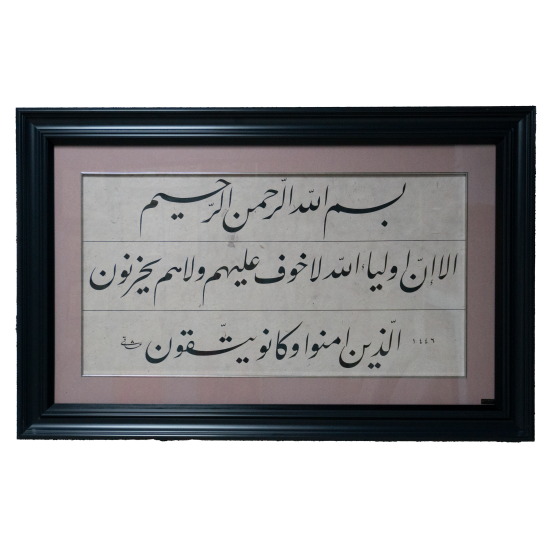 بسم الله الرّحمن الرّحيم
الا إنّ اولياء الله لا خوف عليهم ولا هم يحزنون
الّذين امنوا وكانو يتّقون ١٤٤٦